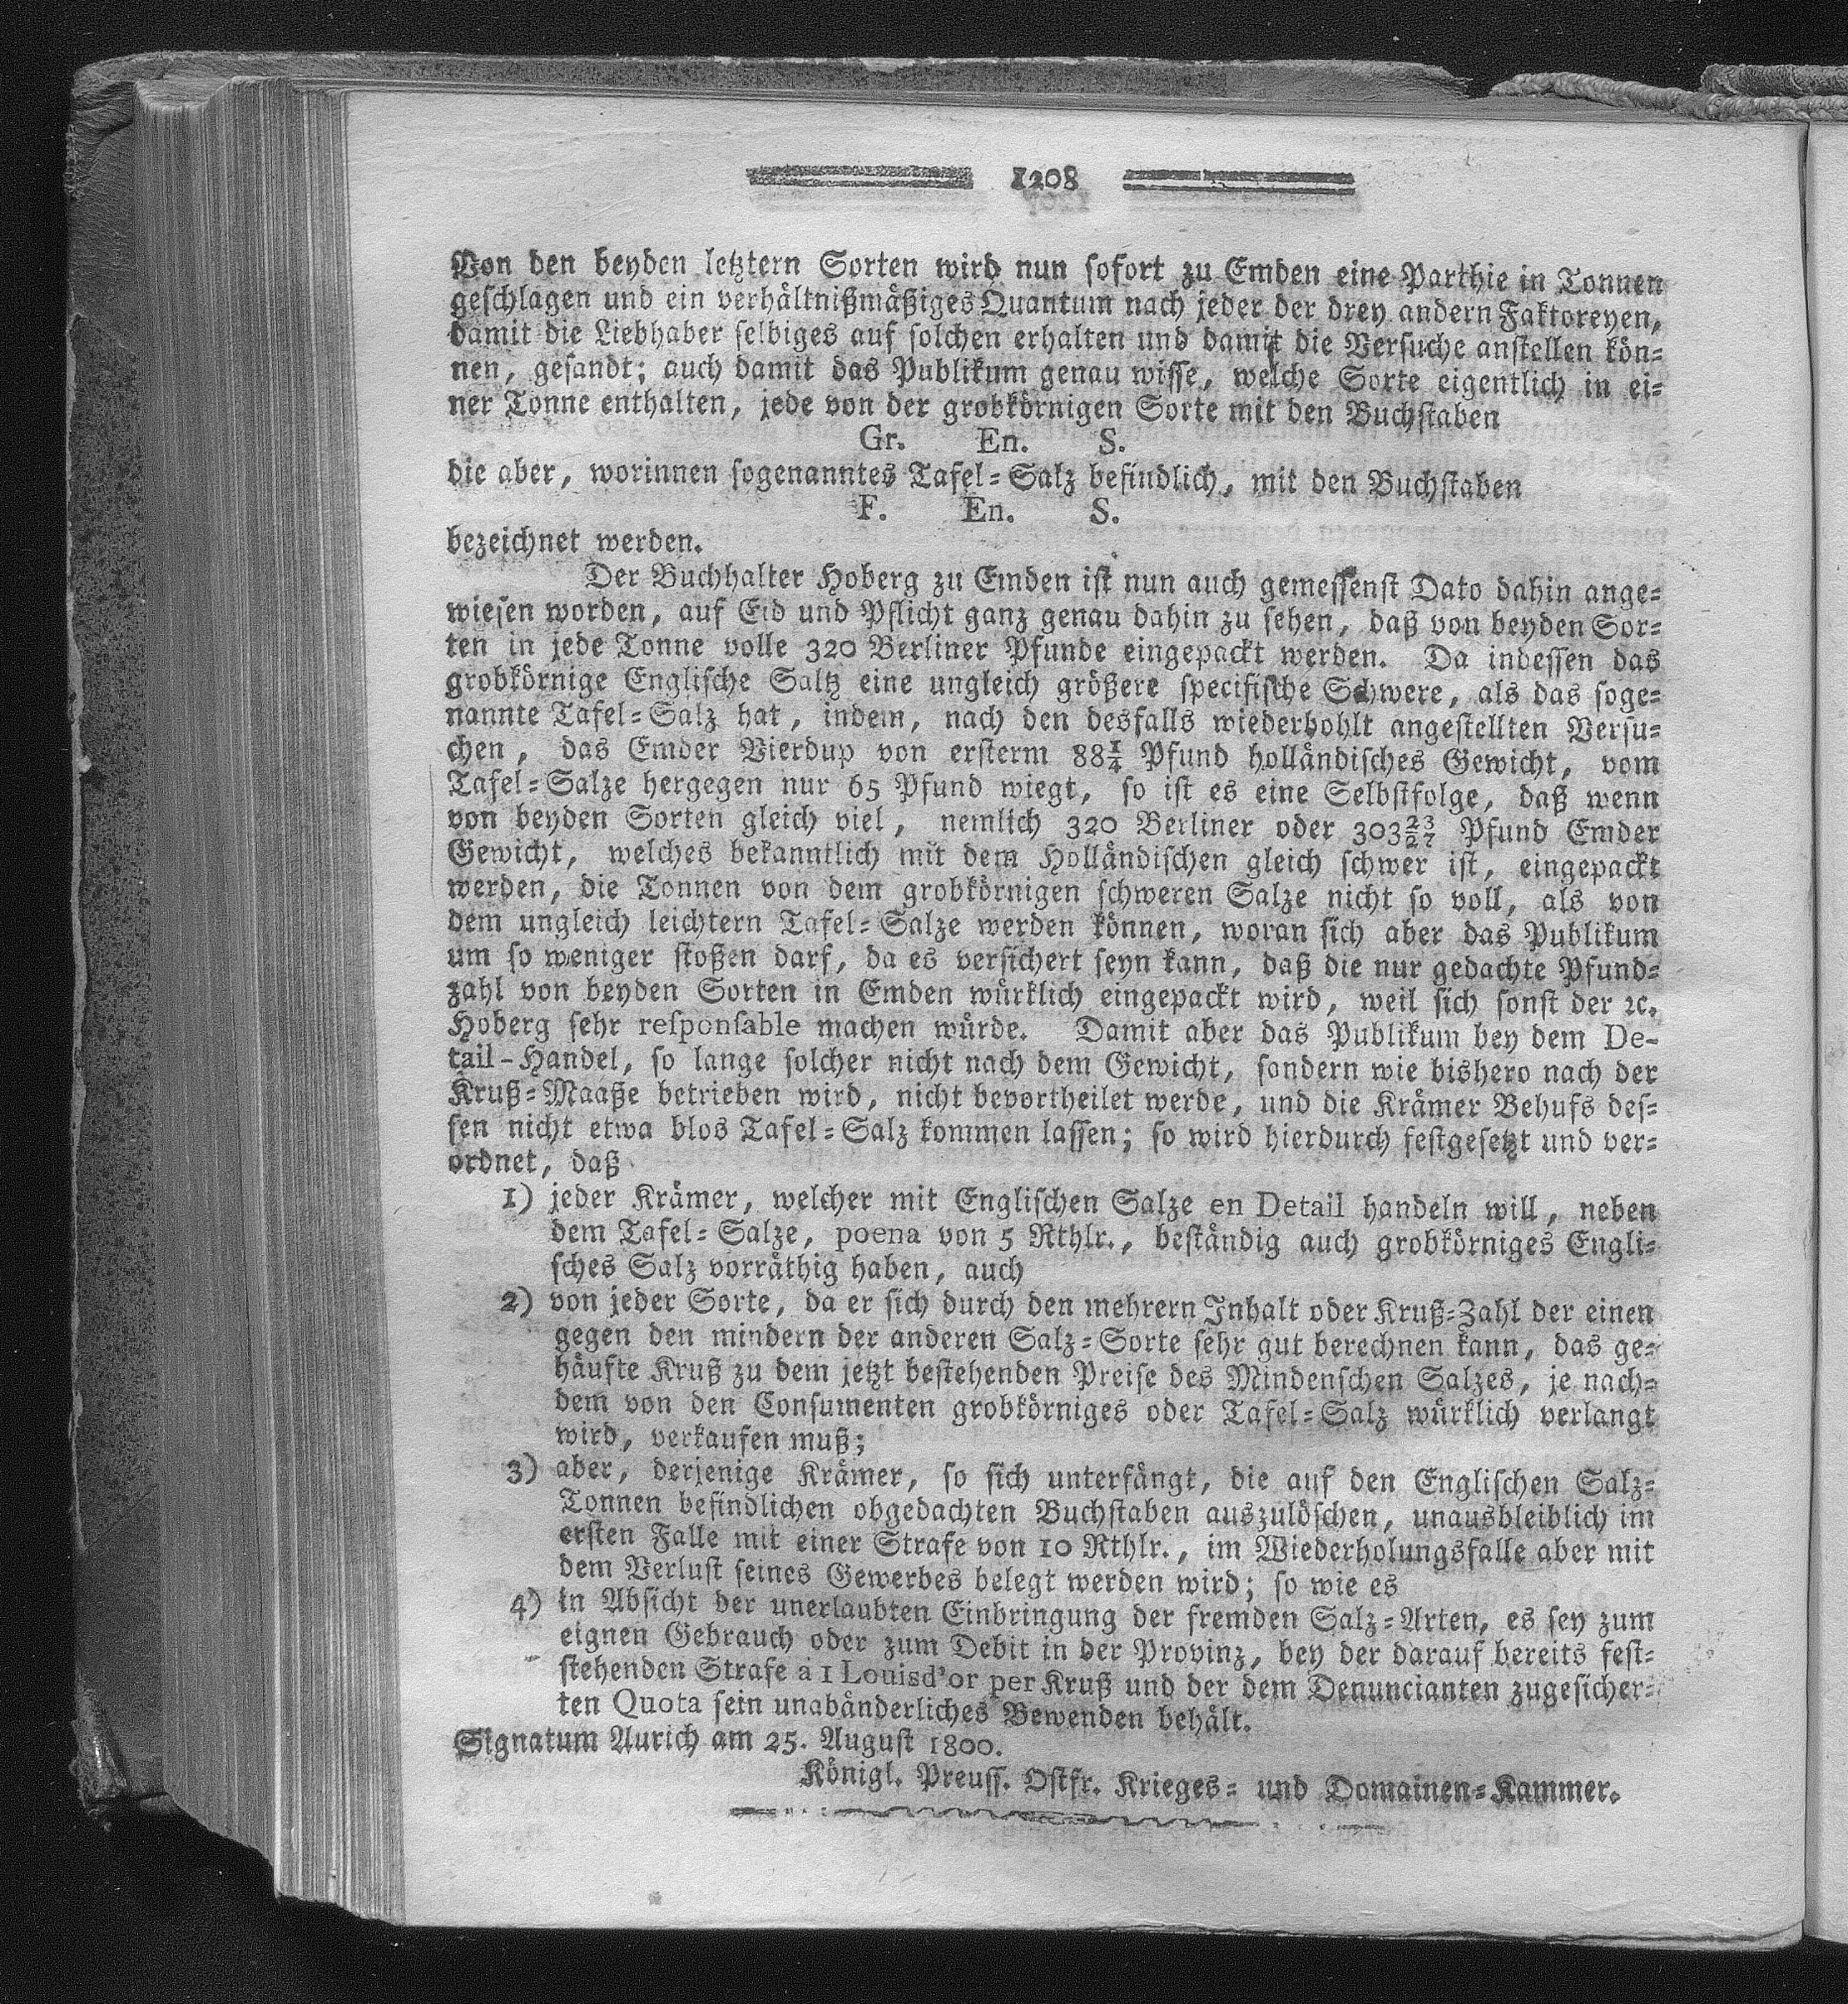 1208
Von den beyden letztern Sorten wird nun sofort zu Emden eine Parthie in Tonnen
geschlagen und ein verhältnißmäßiges Quantum nach jeder der drey andern Faktoreyen,
damit die Liebhaber selbiges auf solchen erhalten und damit die Versuche anstellen kön-
nen, gesandt; auch damit das Publikum genau wisse, welche Sorte eigentlich in ei-
ner Tonne enthalten, jede von der grobkörnigen Sorte mit den Buchstaben
Gr. En. S.
die aber, worinnen sogenanntes Tafel-Salz befindlich, mit den Buchstaben
F. En. S.
bezeichnet werden.
Der Buchhalter Hoberg zu Emden ist nun auch gemessenst Dato dahin ange-
wiesen worden, auf Eid und Pflicht ganz genau dahin zu sehen, daß von beyden Sor-
ten in jede Tonne volle 320 Berliner Pfunde eingepackt werden. Da indessen das
grobkörnige Englische Saltz eine ungleich größere specifische Schwere, als das soge-
nannte Tafel-Salz hat, indem, nach den desfalls wiederhohlt angestellten Versu-
chen, das Emder Vierdup von ersterm 88 1/4 Pfund holländisches Gewicht, vom
Tafel-Salze hergegen nur 65 Pfund wiegt, so ist es eine Selbstfolge, daß wenn
von beyden Sorten gleich viel, nemlich 320 Berliner oder 303 23/27 Pfund Emder
Gewicht, welches bekanntlich mit dem Holländischen gleich schwer ist, eingepackt
werden, die Tonnen von dem grobkörnigen schweren Salze nicht so voll, als von
dem ungleich leichtern Tafel-Salze werden können, woran sich aber das Publikum
um so weniger stoßen darf, da es versichert seyn kann, daß die nur gedachte Pfund-
zahl von beyden Sorten in Emden würklich eingepackt wird, weil sich sonst der ꝛc.
Hoberg sehr responsable machen würde. Damit aber das Publikum bey dem De-
tail-Handel, so lange solcher nicht nach dem Gewicht, sondern wie bishero nach der
Kruß-Maaße betrieben wird, nicht bevortheilet werde, und die Krämer Behufs des-
sen nicht etwa blos Tafel-Salz kommen lassen; so wird hierdurch festgesetzt und ver-
ordnet, daß
1) jeder Krämer, welcher mit Englischen Salze en Detail handeln will, neben
dem Tafel-Salze, poena von 5 Rthlr., beständig auch grobkörniges Engli-
sches Salz vorräthig haben, auch
2) von jeder Sorte, da er sich durch den mehrern Inhalt oder Kruß-Zahl der einen
gegen den mindern der anderen Salz-Sorte sehr gut berechnen kann, das ge-
häufte Kruß zu dem jetzt bestehenden Preise des Mindenschen Salzes, je nach-
dem von den Consumenten grobkörniges oder Tafel-Salz würklich verlangt
wird, verkaufen muß;
3) aber, derjenige Krämer, so sich unterfängt, die auf den Englischen Salz-
Tonnen befindlichen obgedachten Buchstaben auszulöschen, unausbleiblich im
ersten Falle mit einer Strafe von 10 Rthlr., im Wiederholungsfalle aber mit
dem Verlust seines Gewerbes belegt werden wird; so wie es
4) in Absicht der unerlaubten Einbringung der fremden Salz-Arten, es sey zum
eignen Gebrauch oder zum Debit in der Provinz, bey der darauf bereits fest-
stehenden Strafe à 1 Louisd'or per Kruß und der dem Denuncianten zugesicher-
ten Quota sein unabänderliches Bewenden behält.
Signatum Aurich am 25. August 1800.
Königl. Preuss. Ostfr. Krieges- und Domainen-Kammer.